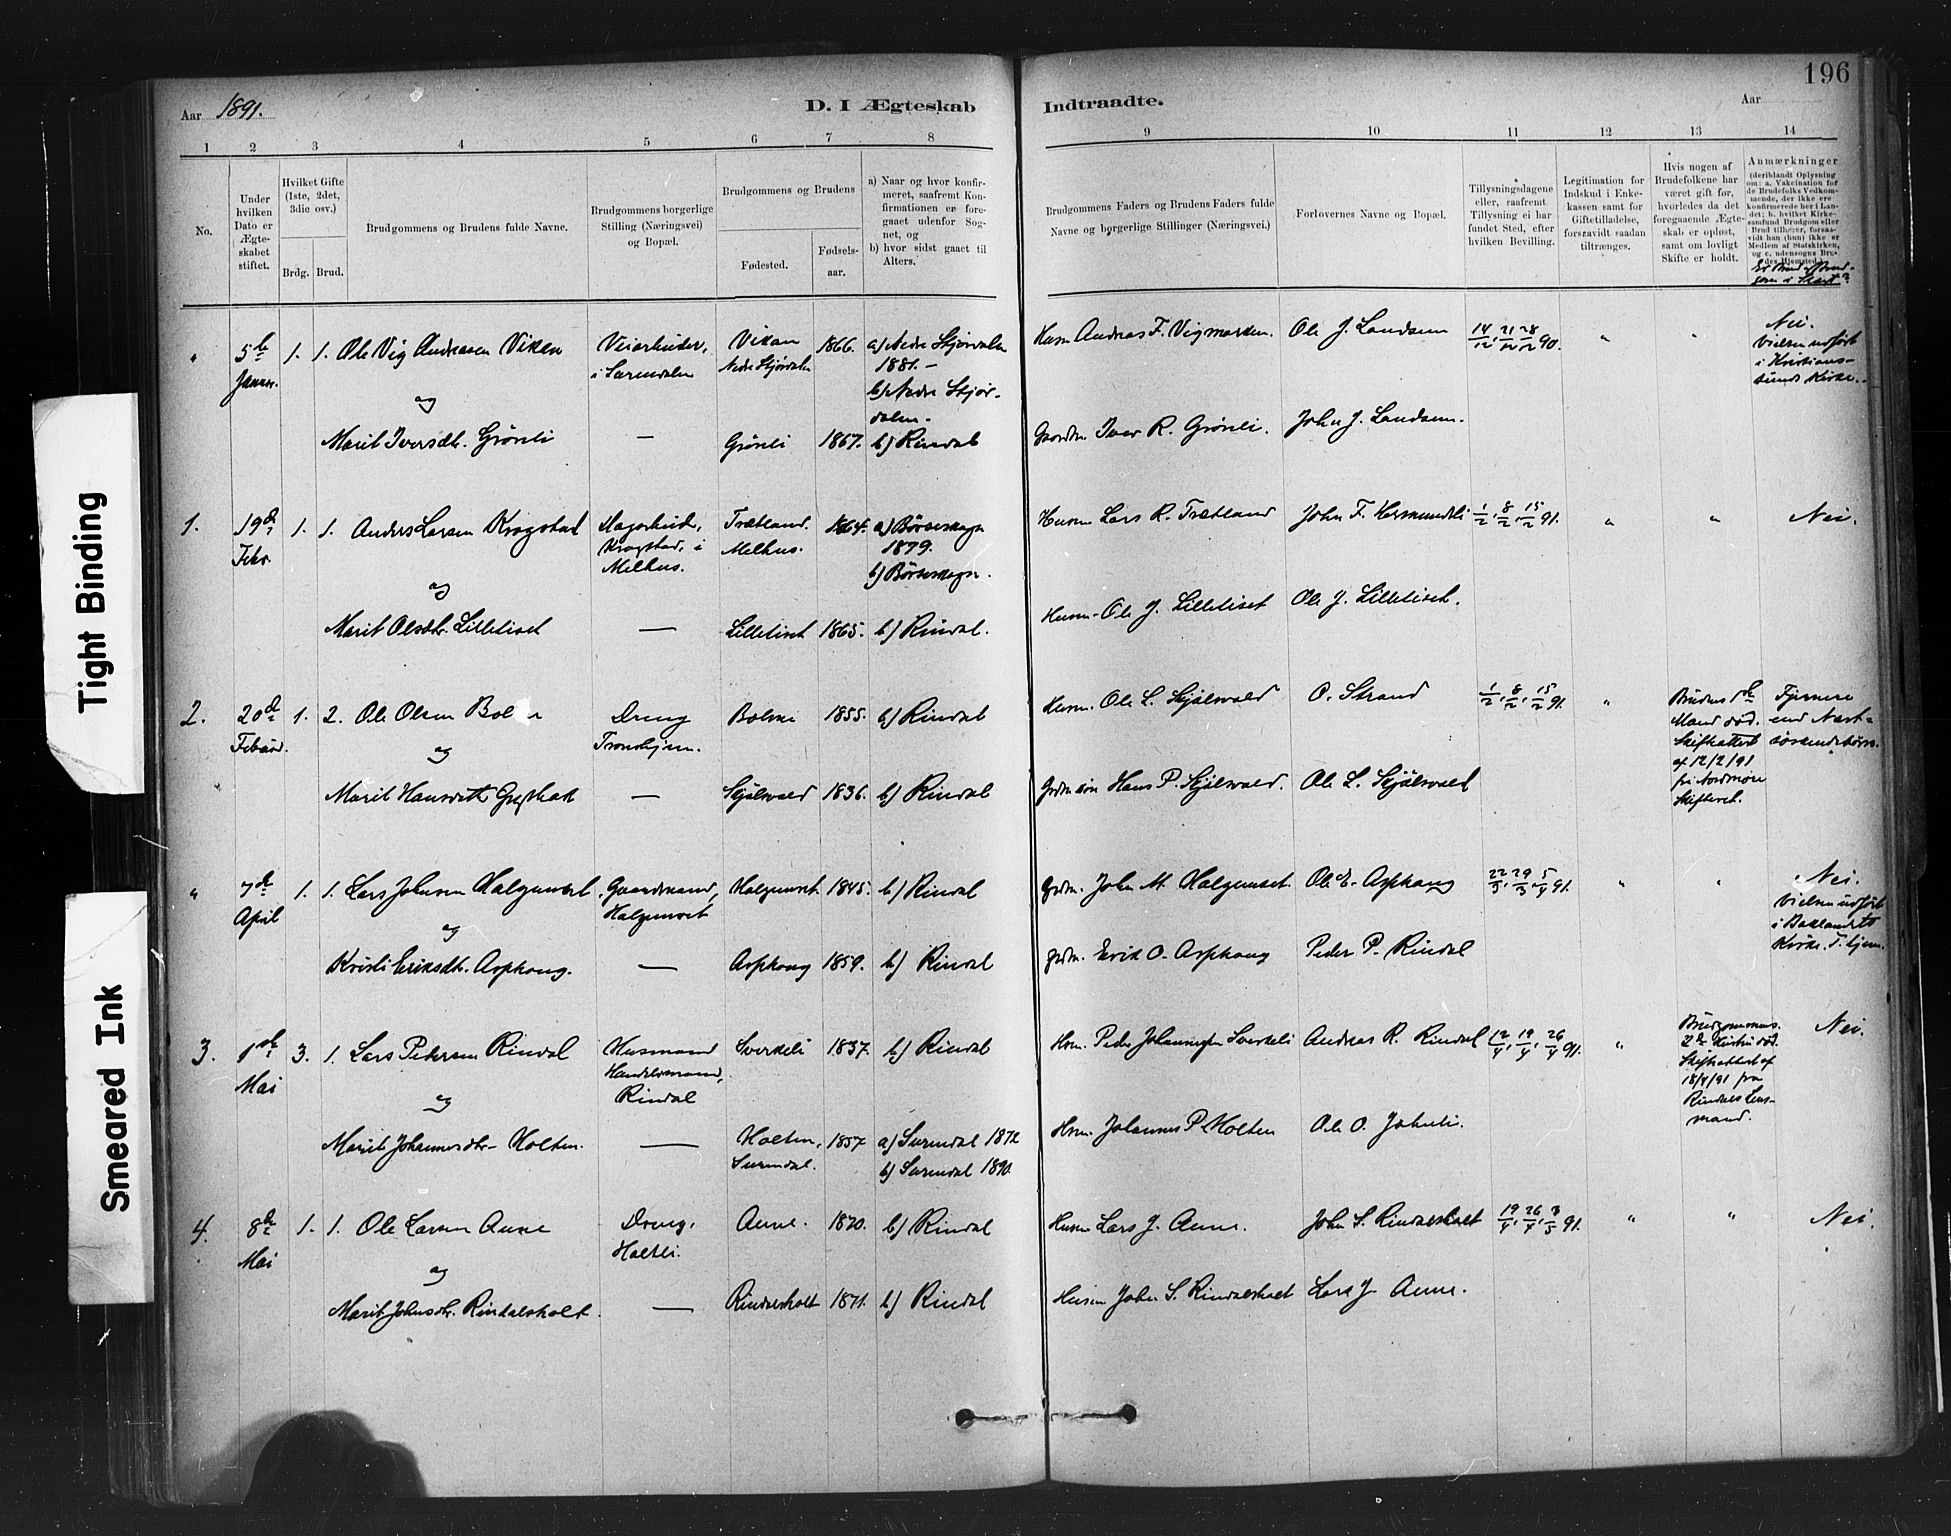 196
Aar 1891.
D. I Ægteskab Indtraadte.
Aar
1 2 3 4 5 6 7 8 9 10 11 12 13 14
No.
Under hvilken Dato er Ægteskabet stiftet.
Hvilket Gifte (1ste, 2det, 3die osv.)
Brdg. Brud.
Brudgommens og Brudens fulde Navne.
Brudgommens borgerlige Stilling (Næringsvei) og Bopæl.
Brudgommens og Brudens
Fødested.
Fødselsaar.
a) Naar og hvor konfirmeret, saafremt Konfirmationen er foregaaet udenfor Sognet, og
b) hvor sidst gaaet til Alters.
Brudgommens Faders og Brudens Faders fulde Navne og borgerlige Stillinger (Næringsvei.)
Forlovernes Navne og Bopæl.
Tillysningsdagene eller, saafremt Tillysning ei har fundet Sted, efter hvilken Bevilling.
Legitimation for Indskud i Enkekassen samt for Giftetilladelse, forsaavidt saadan tiltrænges.
Hvis nogen af Brudefolkene har været gift før, hvorledes da det foregaaende Ægteskab er opløst, samt om lovligt Skifte er holdt.
Anmærkninger (deriblandt Oplysning om: a. Vakcination for de Brudefolks Vedkommende, der ikke ere konfirmerede her i Landet; b. hvilket Kirkesamfund Brudgom eller Brud tilhører, forsaavidt han (hun) ikke er Medlem af Statskirken, og c. udensogns Brudes Hjemsted.)
" 5te Januar. 1. 1. Ole Vig Andreasen Viken Veiarbeider, i Surendalen Vikan Nedre Stjørdalen 1866. a) Nedre Stjørdalen 1881. – b) Nedre Stjørdalen. Husm Andreas F. Vigmarken. Ole J. Landsem 14/12, 21/12, 28/12 90. " " Nei. Vielsen udført i Kristianssunds Kirke.
og
Marit Iversdtr. Grönli — Grönli 1867. b) Rindal Gaardm. Iver R. Grönli. John J. Landsem.
1. 19de Febr. 1. 1. Anders Larsen Krogstad Krogstad, i Melhus. Trætland. Melhus. 1864. a) Börseskogn 1879. b) Börseskogn. Husm Lars R. Trætland John F. Hermundsli 1/2, 8/2, 15/2 91. " " Nei.
og
Marit Olsdtr. Lilleliset — Lilleliset 1865. b) Rindal. Husm. Ole J. Lilleliset Ole J. Lilleliset.
2. 20de Februar. 1. 2. Ole Olsen Dreng Trondhjem. Bolme 1855. b) Rindal Husm. Ole L. Skjølsvold O. Strand 1/2, 8/2, 15/2 91. " Brudens Mand död. Skifteattest af 12/2/91 fra Nordmöre Skifteret. Fjernere end Næstsöskendebörn.
og
Marit Hansdtr — Skjølsvold 1836. b) Rindal Hans P. Skjølsvold. Ole L. Skjølsvold
" 7de April 1. 1. Lars Johnsen Halgunset, Gaardmand, Halgunset Halgunset. 1845. b) Rindal Grdm. John M. Halgunset. Ole E. Asphaug 22/3, 29/3, 5/4 91. " " Nei. Vielsen udført i Baklandets Kirke. T.hjem.
og
Kristi Eriksdtr. Asphaug. — Asphaug 1859. b) Rindal Grdm. Erik O. Asphaug Peder P. Rindal
3. 1ste Mai 3. 1. Lars Pedersen Rindal Husmand Handelsmand, Rindal Sverkeli 1837. b) Rindal Hsm. Peder Johannessen Sverkeli Andreas R. Rindal 12/4, 19/4, 26/4 91. " Brudgommens 2den Hustru död. Skifteattest af 18/4/91 fra Rindals Lensmand. Nei.
og
Marit Johannesdtr. Holten. — Holten, Surendal. 1857 a) Surendal 1872 b) Surendal 1890. Hsm. Johannes P. Holten Ole O. Jahnli.
4. 8de Mai 1. 1. Ole Larsen Aune Dreng, Holtli. Aune. 1870. b) Rindal Husm Lars J. Aune. John S. Rindalsholt 19/4, 26/4, 3/5 91. " " Nei.
og
Marit Johnsdtr. Rindalsholt. — Rindalsholt 1871. b) Rindal Husm John S. Rindalsholt Lars J. Aune.
Tight Binding
Smeared Ink